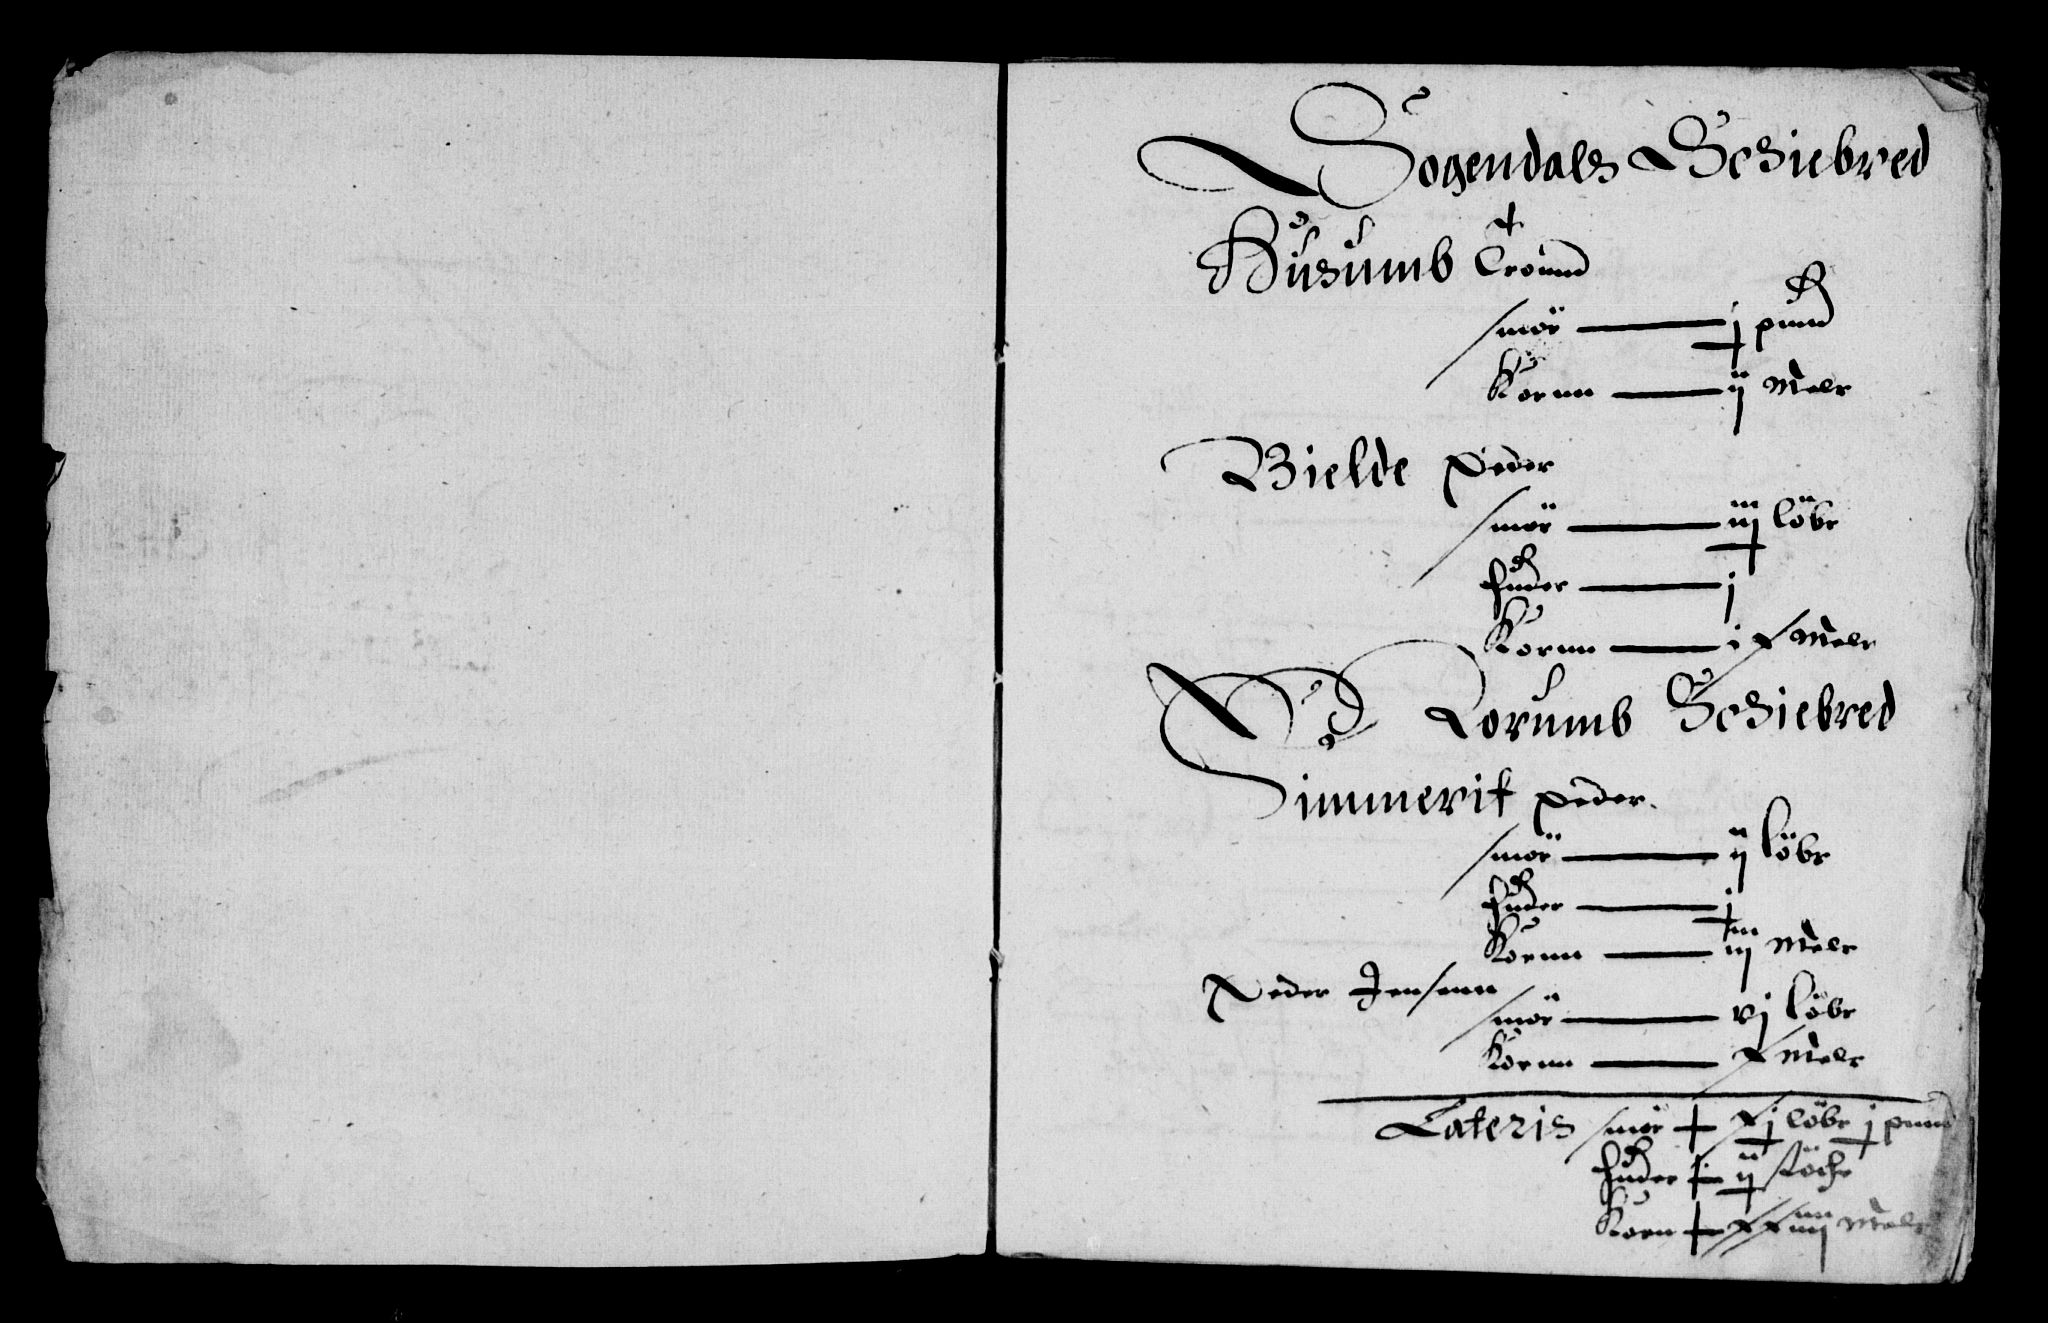 Sogendals Schiebred
Husumb Tround
smör j pund
Kornn ij Meler
Bielde Peder
smör iij löbr
huder j
Kornn ix Meler
Lorumb Schiebred
Simmerit peder
smör ij löbr
huder j
Kornn iij Meler
Peder Jensenn
smör vj löber
Kornn x Meler
Lateris smör xj löber j pund
huder ij stöcher
Korn xxiiij Meler